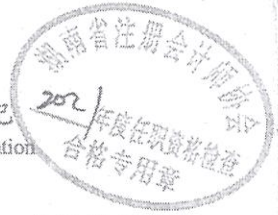 湖南省注册会计师协会
2021年度任职资格检查
合格专用章
ation